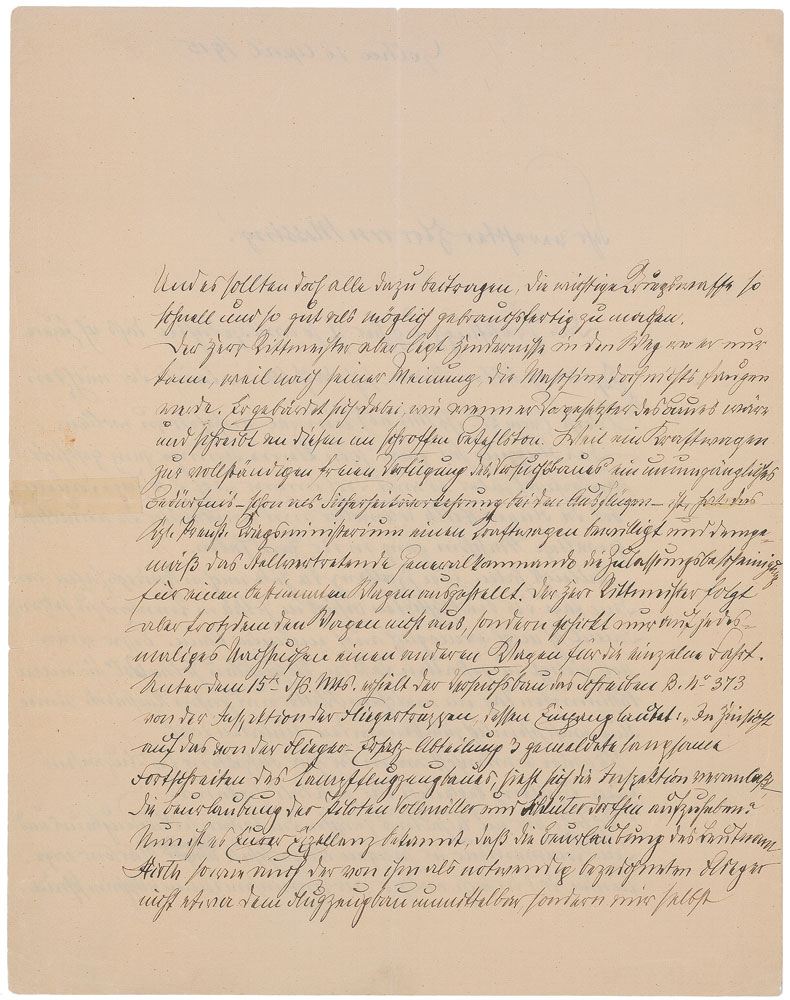 Und es sollten doch alle dazu beitragen, die wichtige Kriegswaffe so
schnell und so gut als möglich gebrauchsfertig zu machen.
Der Herr Rittmeister aber legt Hindernisse in den Weg wo er nur
kann, weil nach seiner Meinung, die Maschine doch nichts taugen
werde. Er gebärdet sich dabei, wie wenn er Vorgesetzter des Baues wäre
und schreibt an diesen im schroffen Befehlston. Weil ein Kraftwagen
zur vollständigen freien Verfügung des Versuchsbaues ein unumgängliches
Bedürfnis – schon als Sicherheitsvorkehrung bei den Ausflügen – ist, hat das
Kgl. Preuß. Kriegsministerium einen Kraftwagen bewilligt und demge-
mäß das Stellvertretende Generalkommando die Zulassungsbescheinigung
für einen bestimmten Wagen ausgestellt. Der Herr Rittmeister folgt
aber trotzdem den Wagen nicht aus, sondern schickt nur auf jedes-
maliges Nachsuchen einen anderen Wagen für die einzelne Fahrt.
Unter dem 15ten ds. Mts. erhielt der Versuchsbau das Schreiben B. No 373
von der Inspektion der Fliegertruppen, dessen Eingang lautet: „In Hinsicht
auf das von der Flieger-Ersatz-Abteilung 3 gemeldete langsame
Fortschreiten des Kampfflugzeugbaues, sieht sich die Inspektion veranlaßt
die Beurlaubung der Piloten Vollmöller und Schlüter dorthin aufzuheben."
Nun ist es Eurer Exzellenz bekannt, daß die Beurlaubung des Leutnant
Hirth sowie auch der von ihm als notwendig bezeichneten Flieger
nicht etwa dem Flugzeugbau unmittelbar sondern mir selbst